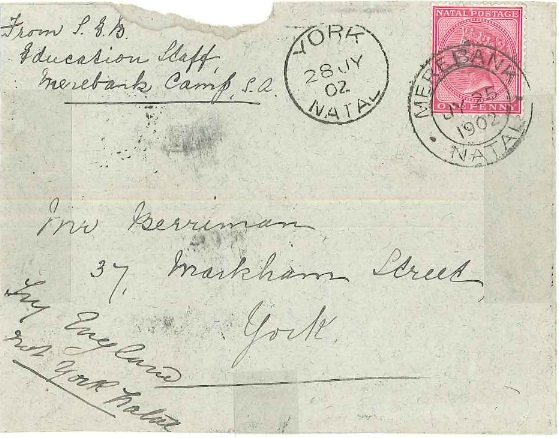 From S.E.B.
Education Staff,
Merebank Camp, S.A.
YORK
28 JY
02
NATAL
NATAL POSTAGE
ONE PENNY
MEREBANK
JY 25
1902
NATAL
Mr Berriman
37, Markham Street,
York.
Try England
not York Natal